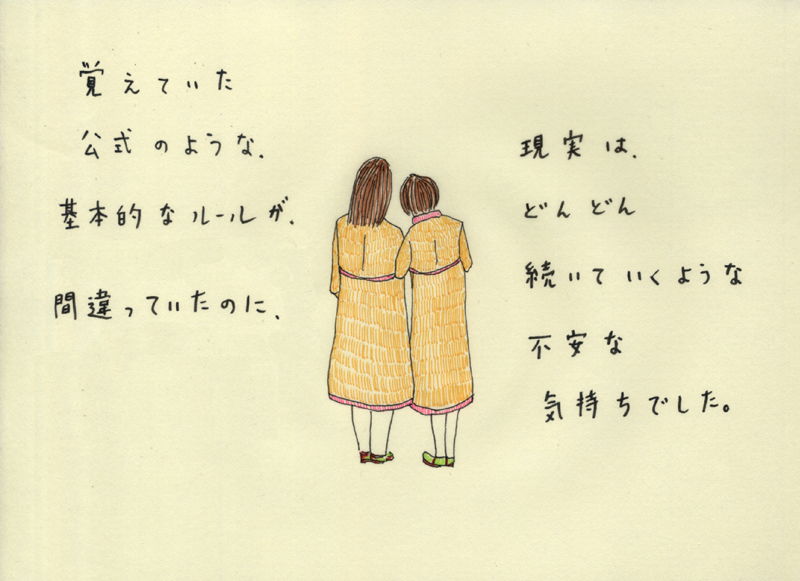 覚えていた
公式のような、
基本的なルールが、
間違っていたのに、
現実は、
どんどん
続いていくような
不安な
気持ちでした。